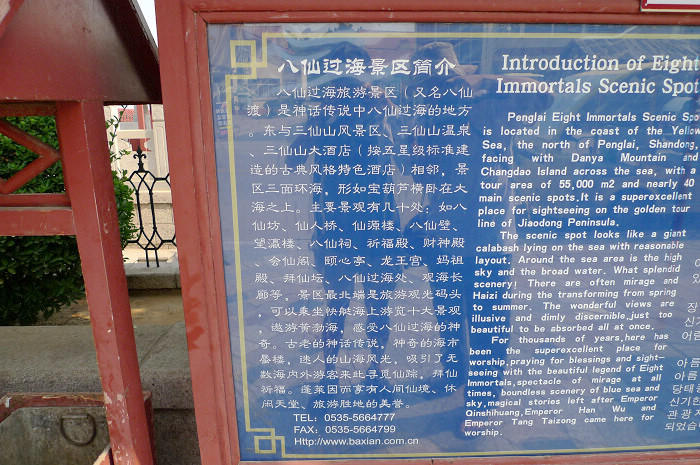 八仙过海景区简介
八仙过海旅游景区（又名八仙
渡）是神话传说中八仙过海的地方
。东与三仙山风景区、三仙山温泉
、三仙山大酒店（按五星级标准建
造的古典风格特色酒店）相邻，景
区三面环海，形如宝葫芦横卧在大
海之上。主要景观有几十处：如八
仙坊、仙人桥、仙源楼、八仙壁、
望瀛楼、八仙祠、祈福殿、财神殿
、会仙阁、颐心亭、龙王宫、妈祖
殿、拜仙坛、八仙过海处、观海长
廊等。景区最北端是旅游观光码头
，可以乘坐快艇海上游览十大景观
，遨游黄渤海，感受八仙过海的神
奇。古老的神话传说，神奇的海市
蜃楼，迷人的山海风光，吸引了无
数海内外游客来此寻觅仙踪、拜仙
祈福。蓬莱因而享有人间仙境、休
闲天堂、旅游胜地的美誉。
TEL: 0535-5664777
FAX: 0535-5664799
Http://www.baxian.com.cn
Introduction of Eight
Immortals Scenic Spot
Penglai Eight Immortals Scenic Spo
is located in the coast of the Yellow
Sea, the north of Penglai, Shandong,
facing with Danya Mountain and
Changdao Island across the sea, with a
tour area of 55,000 m2 and nearly 40
main scenic spots.It is a superexcellent
place for sightseeing on the golden tour
line of Jiaodong Peninsula.
The scenic spot looks like a giant
calabash lying on the sea with reasonable
layout. Around the sea area is the high
sky and the broad water. What splendid
scenery! There are often mirage and
Haizi during the transforming from spring
to summer. The wonderful views are
illusive and dimly discernible,just too
beautiful to be absorbed all at once.
For thousands of years,here has
been the superexcellent place for
worship,praying for blessings and sight-
seeing with the beautiful legend of Eight
Immortals,spectacle of mirage at all
times, boundless scenery of blue sea and
sky,magical stories left after Emperor
Qinshihuang,Emperor Han Wu and
Emperor Tang Taizong came here for
worship.
아름
당태
신기한
관광지
되었습